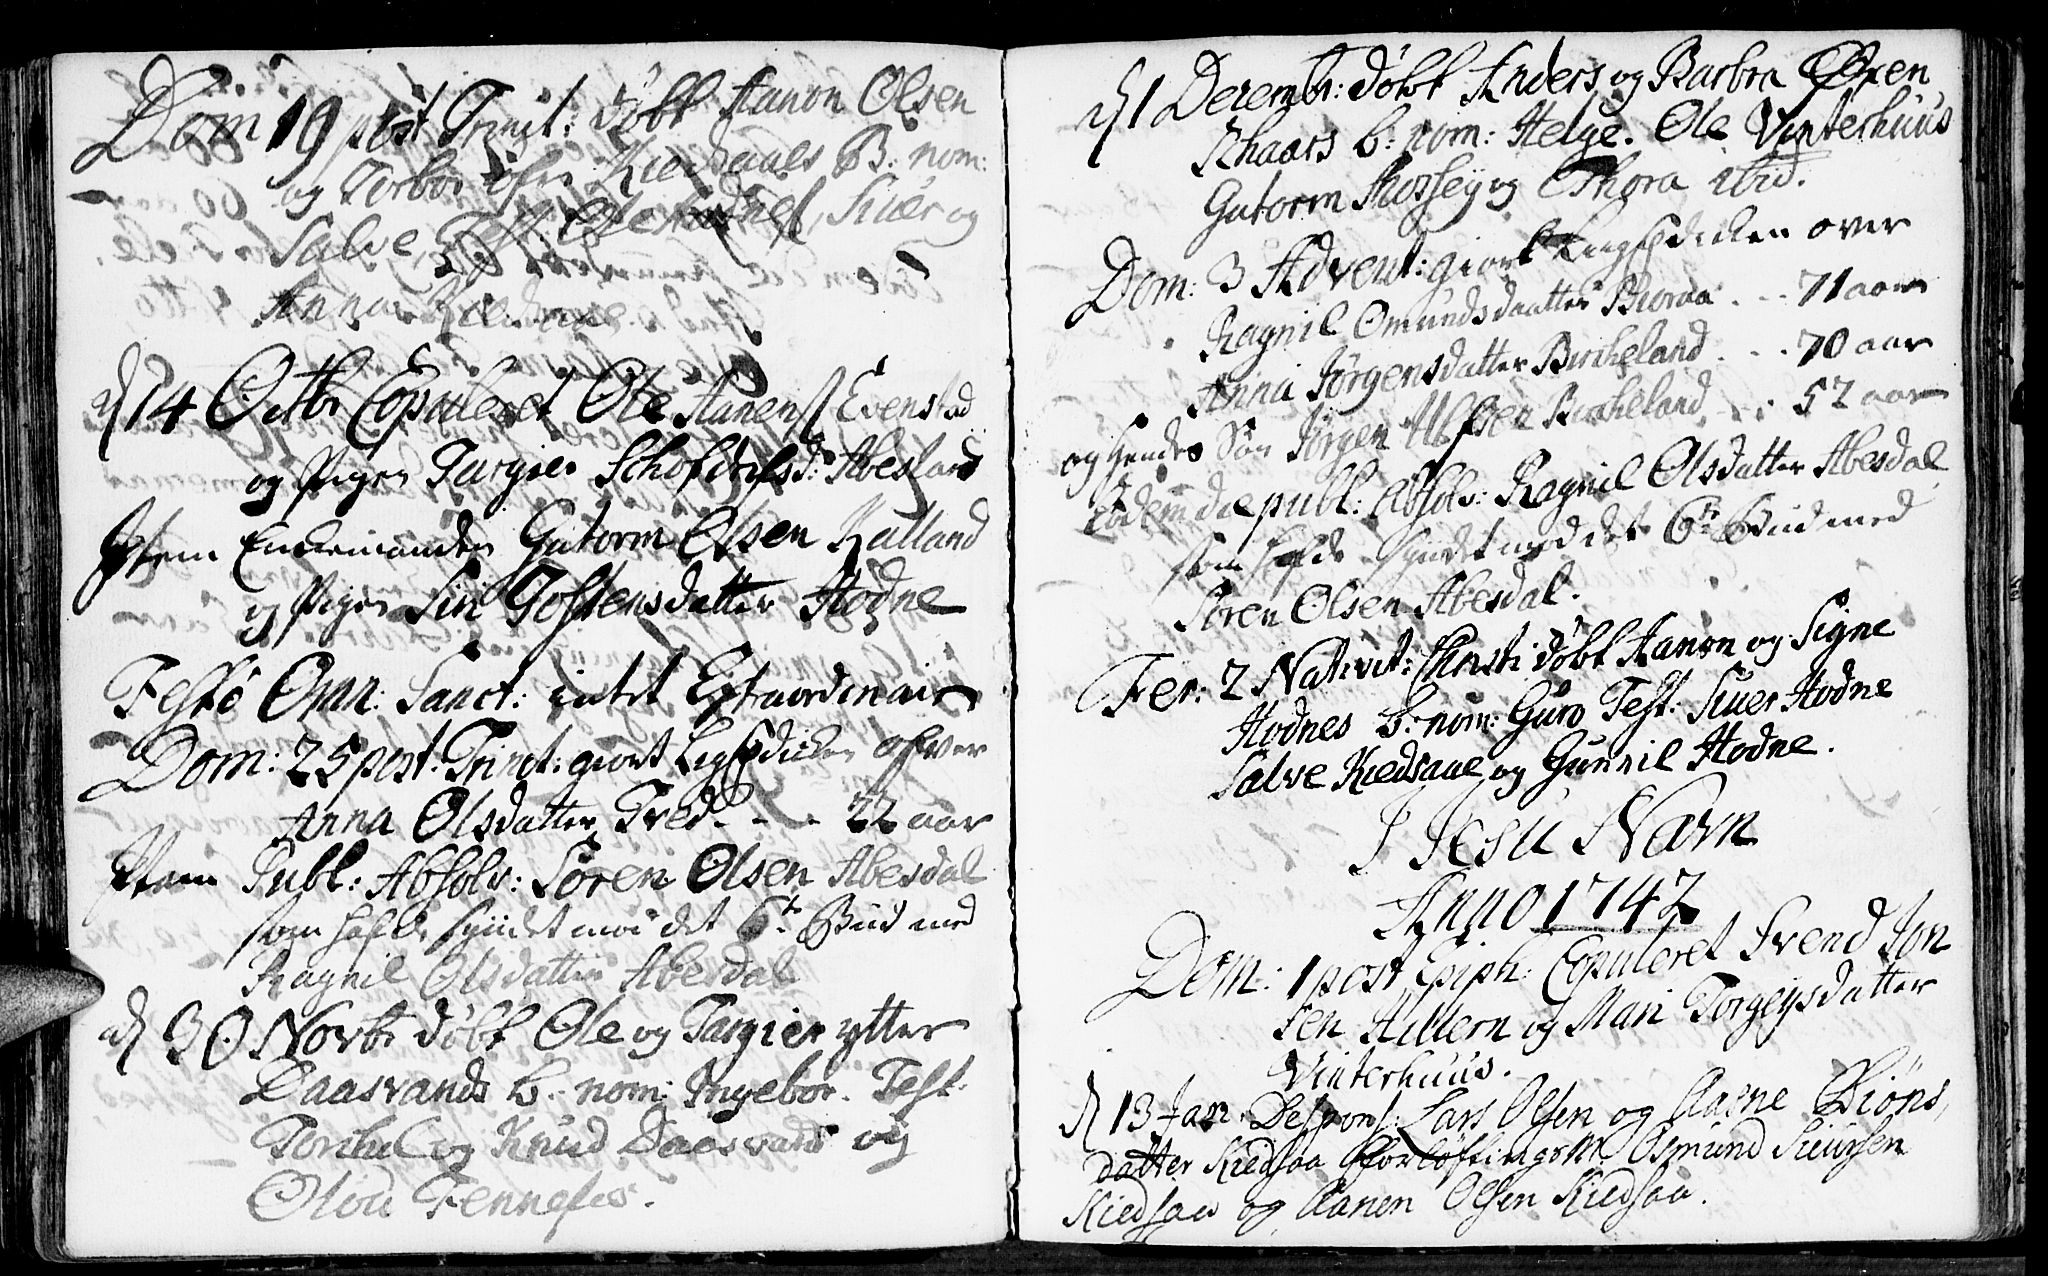 Dom 19 post Trinit: døbt Aanon Olsen
og Torbor Kiedsaaes B: nom:
Salve Test: Ole Hodnes, Siver og
Anna Kiedsaae
d 14 Octbr Copuleret Ole Aanens Evenstad
og Pigen Targier d: Abesland
Item Enkemanden Gutorm Olsen Kalland
og Pigen Siri Tostensdatter Hodne
Festo Omn: Sanct: intet Extraordinair
Dom: 25 post Trinit: giort Ligprædicken ofver
Anna Olsdatter Tved - - - 22 aar
Item Publ: Absolv: Søren Olsen Abesdal
som hafde syndet mod det 6te Bud med
Ragnil Olsdatter Abesdal
d 30 Novbr døbt Ole og Targier ytter
Daasvands b: nom: Ingebor. Test:
Torkel og Knud Daasvand og
Olou Fennefos.
d 1 Decembr: døbt Anders og Barbra Øxen
Khaars b: nom: Helge. Ole Vinterhuus
Gutorm Mossey og Thora ibid.
Dom: 3 Advent: giort Ligprædicken over
Ragnil Omundsdaatter Bioraa - - - 71 aar
Anna Jørgensdatter Birkeland - - - 70 aar
og hendes Søn Jørgen Ulfsen Birkeland - - : 52 aar
Eodem die publ: Absolv: Ragnil Olsdatter Abesdal
som hafde Syndet mod det 6te Bud med
Søren Olsen Abesdal.
Fer: 2 Nativit: Christi døbt Aanon og Signe
Hodnes b: nom: Guro Test: Siver Hodne
Salve Kiedsaae og Gunnil Hodne.
I Jesu Navn
Anno 1742
Dom: 1 post Epiph: Copuleret Svend Jon
sen Hillern og Mari Torgeysdatter
Vinterhuus.
d 13 Jan: Despons: Lars Olsen og Aasne Biøns
datter Kiedsaa Forløftingsm: Osmund Siursen
Kiedsaa og Aanen Olsen Kiedsaa.